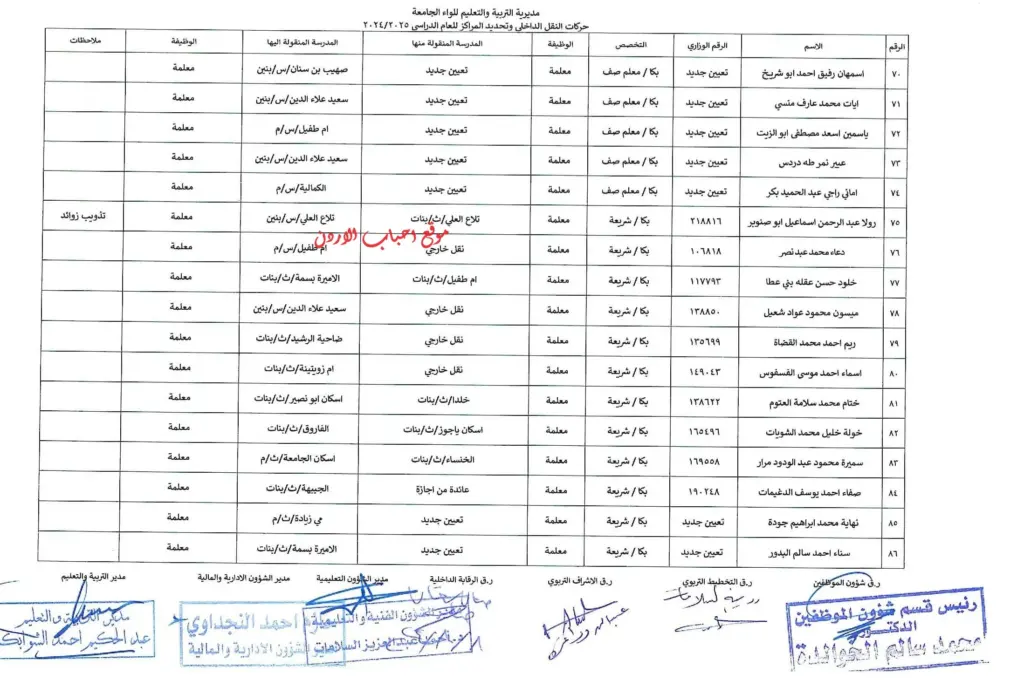 مديرية التربية والتعليم للواء الجامعة
حركات النقل الداخلي وتحديد المراكز للعام الدراسي ٢٠٢٤/٢٠٢٥
الرقم الاسم الرقم الوزاري التخصص الوظيفة المدرسة المنقولة منها المدرسة المنقولة اليها الوظيفة ملاحظات
٧٠ اسمهان رفيق احمد ابو شريخ تعيين جديد بكا / معلم صف معلمة تعيين جديد صهيب بن سنان/س/بنين معلمة
٧١ ايات محمد عارف منسي تعيين جديد بكا / معلم صف معلمة تعيين جديد سعيد علاء الدين/س/بنين معلمة
٧٢ ياسمين اسعد مصطفى ابو الزيت تعيين جديد بكا / معلم صف معلمة تعيين جديد ام طفيل/س/م معلمة
٧٣ عبير نمر طه دردس تعيين جديد بكا / معلم صف معلمة تعيين جديد سعيد علاء الدين/س/بنين معلمة
٧٤ اماني راجي عبد الحميد بكر تعيين جديد بكا / معلم صف معلمة تعيين جديد الكمالية/س/م معلمة
٧٥ رولا عبد الرحمن اسماعيل ابو صنوبر ٢١٨٨١٦ بكا / شريعة معلمة تلاع العلي/ث/بنات تلاع العلي/س/بنين معلمة تذويب زوائد
موقع احباب الاردن
٧٦ دعاء محمد عبد نصر ١٠٦٨١٨ بكا / شريعة معلمة نقل خارجي ام طفيل/س/م معلمة
٧٧ خلود حسن عقله بني عطا ١١٧٧٩٣ بكا / شريعة معلمة ام طفيل/ث/بنات الاميرة بسمة/ث/بنات معلمة
٧٨ ميسون محمود عواد شعيل ١٣٨٨٥٠ بكا / شريعة معلمة نقل خارجي سعيد علاء الدين/س/بنين معلمة
٧٩ ريم احمد محمد القضاة ١٣٥٦٩٩ بكا / شريعة معلمة نقل خارجي ضاحية الرشيد/ث/بنات معلمة
٨٠ اسماء احمد موسى الفسفوس ١٤٩٠٤٣ بكا / شريعة معلمة نقل خارجي ام زويتينة/ث/بنات معلمة
٨١ ختام محمد سلامة العتوم ١٣٨٦٢٢ بكا / شريعة معلمة خلدا/ث/بنات اسكان ابو نصير/ث/بنات معلمة
٨٢ خولة خليل محمد الشويات ١٦٥٤٩٦ بكا / شريعة معلمة اسكان ياجوز/ث/بنات الفاروق/ث/بنات معلمة
٨٣ سميرة محمود عبد الودود مرار ١٦٩٥٥٨ بكا / شريعة معلمة الخنساء/ث/بنات اسكان الجامعة/ث/م معلمة
٨٤ صفاء احمد يوسف الدغيمات ١٩٠٢٤٨ بكا / شريعة معلمة عائدة من اجازة الجبيهة/ث/بنات معلمة
٨٥ نهاية محمد ابراهيم جودة تعيين جديد بكا / شريعة معلمة تعيين جديد مي زيادة/ث/م معلمة
٨٦ سناء احمد سالم البدور تعيين جديد بكا / شريعة معلمة تعيين جديد الاميرة بسمة/ث/بنات معلمة
ر.ق شؤون الموظفين ر.ق التخطيط التربوي ر.ق الاشراف التربوي ر.ق الرقابة الداخلية مدير الشؤون التعليمية مدير الشؤون الادارية والمالية مدير التربية والتعليم
رئيس قسم شؤون الموظفين
الدكتور
محمد سالم الخوالدة
مدير الشؤون الفنية والتعليمية
عبدالعزيز السلامات
احمد النجداوي
الشؤون الادارية والمالية
مدير التربية والتعليم
عبد الحكيم احمد الشوابكة